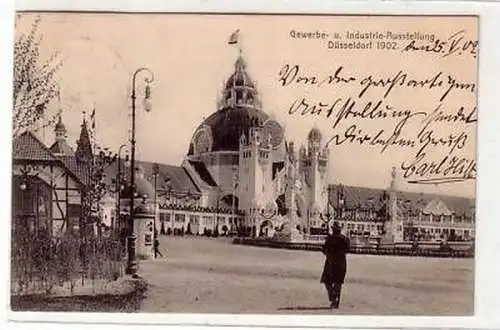 Gewerbe- u. Industrie-Ausstellung
Düsseldorf 1902. den 25. V. 02
Von der großartigen
Ausstellung sendet
Dir besten Gruß
Carl